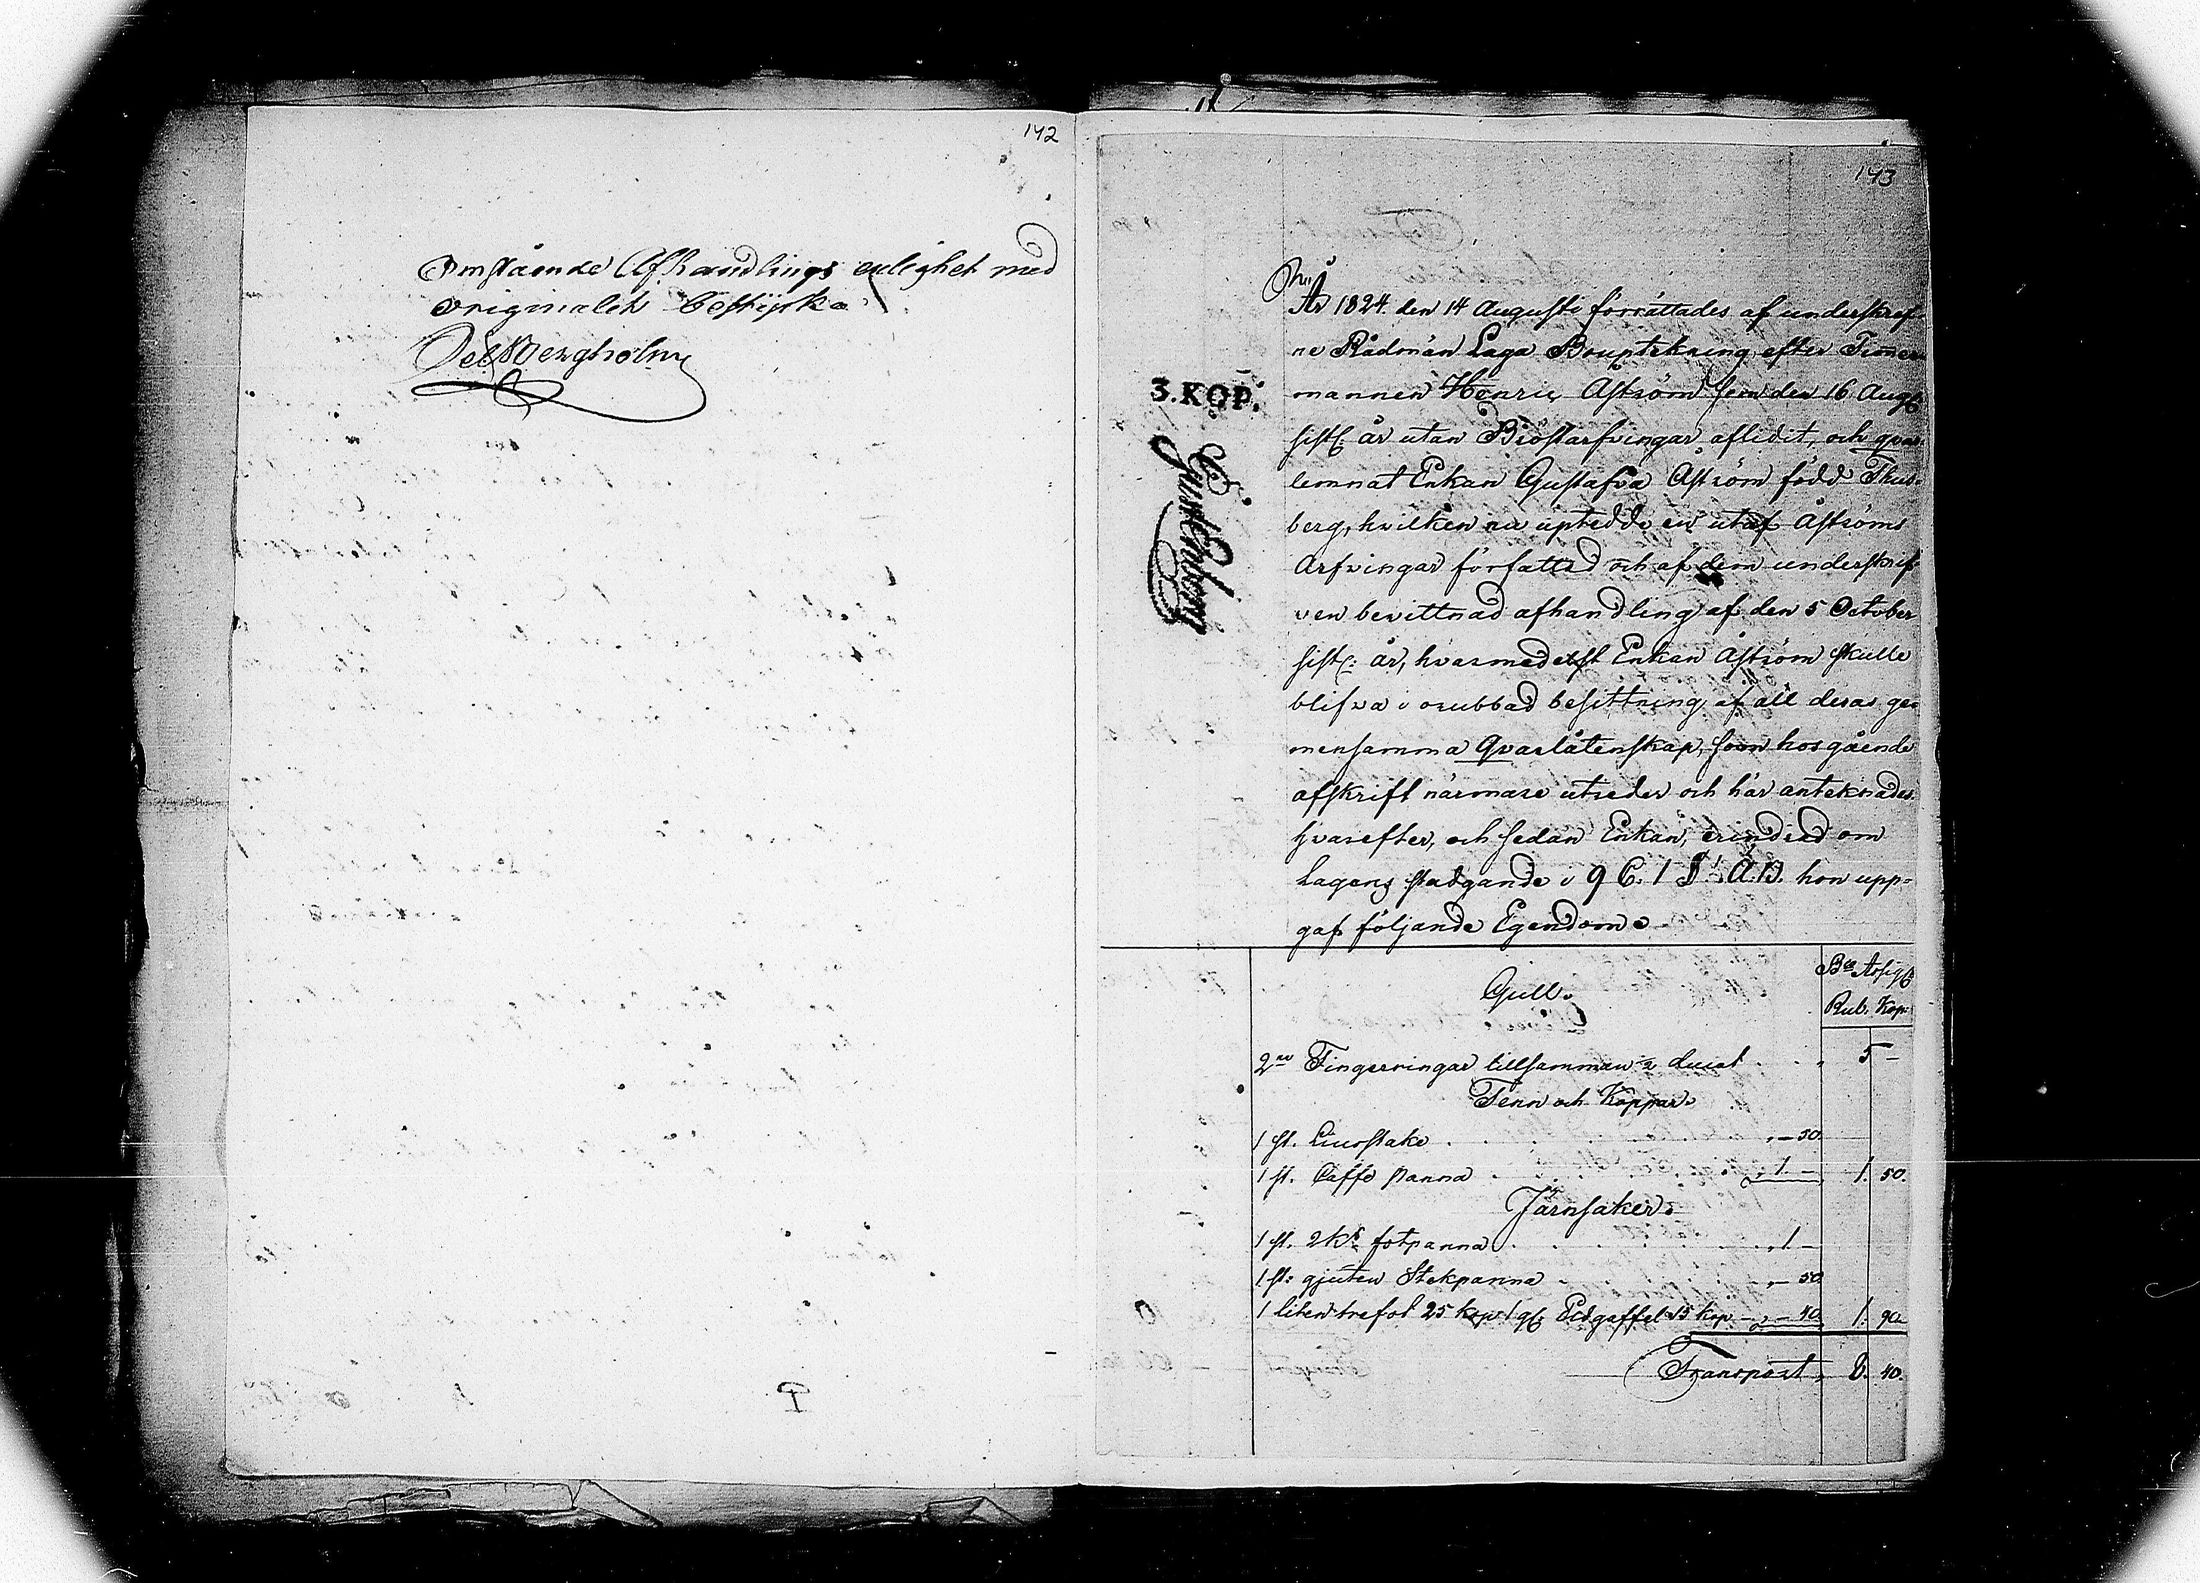 142
Omstående Afhandlings enlighet med
originalet bestyrka
143
År 1824 den 14 Augusti förrättades af underskref-
ne Rådmän Laga Bouptekning efter Timmer
mannen Henric Åström som den 16 Aug
sistl. år utan Bröstarfvingar aflidit, och qvar
lemnat Enkan Gustafva Åström född Thus-
berg, hvilken nu uptedde en utaf Åströms
Arfvingar författad och af dem underskrif
ven bevittnad afhandling af den 5 October
sistl: år, hvarmedelst Enkan Åström skulle
blifva i orubbad besittning af all deras ge-
mensamma Qvarlåtenskap, som hosgående
afskrift närmare utreder och här anteknades.
hvarefter, och sedan Enkan, erindrad om
Lagens stadgande i 9 C. 1 §. Ä.B. hon upp-
gaf följande Egendom.
3. KOP.
Bco Assign
Rub. Kop.
Gull.
2ne Fingerringar tillsamman ½ ducat 5 –
Tenn och Koppar.
1 st. Liusstake „ – 50.
1 st. Caffe panna „ 1 – 1. 50.
Järnsaker.
1 st. 2 Ks fotpanna „ 1 –
1 st: gjuten Stekpanna „ – 50
1 liten trefot 25 kop 1 gl. Eldgaffel 15 kop „ – 40 1. 90.
Transport 8. 40.